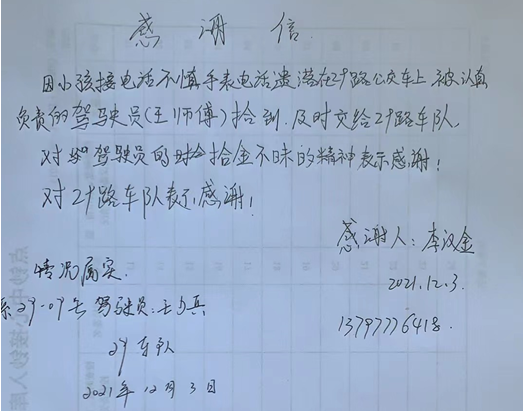 感谢信
因小孩接电话不慎手表电话遗落在29路公交车上被认真
负责的驾驶员(王师傅)拾到.及时交给29路车队.
对驾驶员的拾金不昧的精神表示感谢!
对29路车队表示感谢!
感谢人:李汉金
2021.12.3.
13797776418.
情况属实.
系29-09车驾驶员:王兵
29车队
2021年12月3日